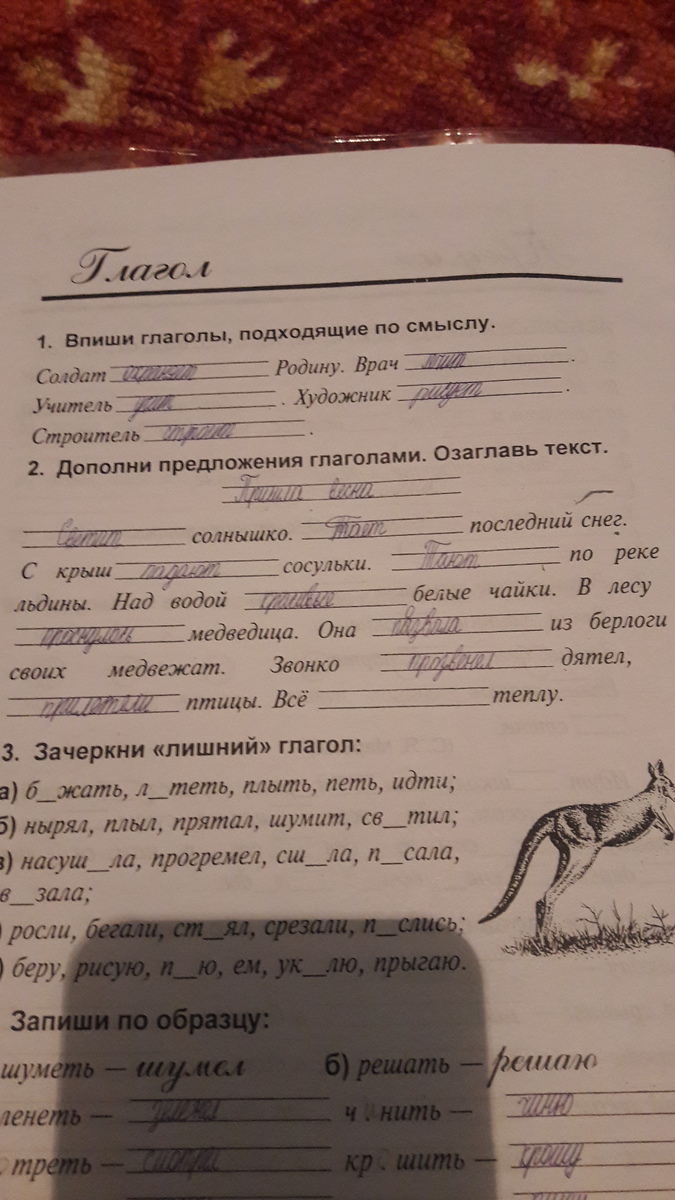 Глагол
1. Впиши глаголы, подходящие по смыслу.
Солдат Родину. Врач .
Учитель учит . Художник рисует .
Строитель .
2. Дополни предложения глаголами. Озаглавь текст.
Пришла весна
Светит солнышко. Тает последний снег.
С крыш падают сосульки. Тают по реке
льдины. Над водой красивые белые чайки. В лесу
проснулась медведица. Она из берлоги
своих медвежат. Звонко прозвенел дятел,
прилетели птицы. Всё теплу.
3. Зачеркни «лишний» глагол:
а) б_жать, л_теть, плыть, петь, идти;
б) нырял, плыл, прятал, шумит, св_тил;
в) насуш_ла, прогремел, сш_ла, п_сала,
в_зала;
) росли, бегали, ст_ял, срезали, п_слись;
) беру, рисую, п_ю, ем, ук_лю, прыгаю.
Запиши по образцу:
шуметь — шумел б) решать — решаю
ленеть — ч . нить — чиню
треть — кр . шить — крошу